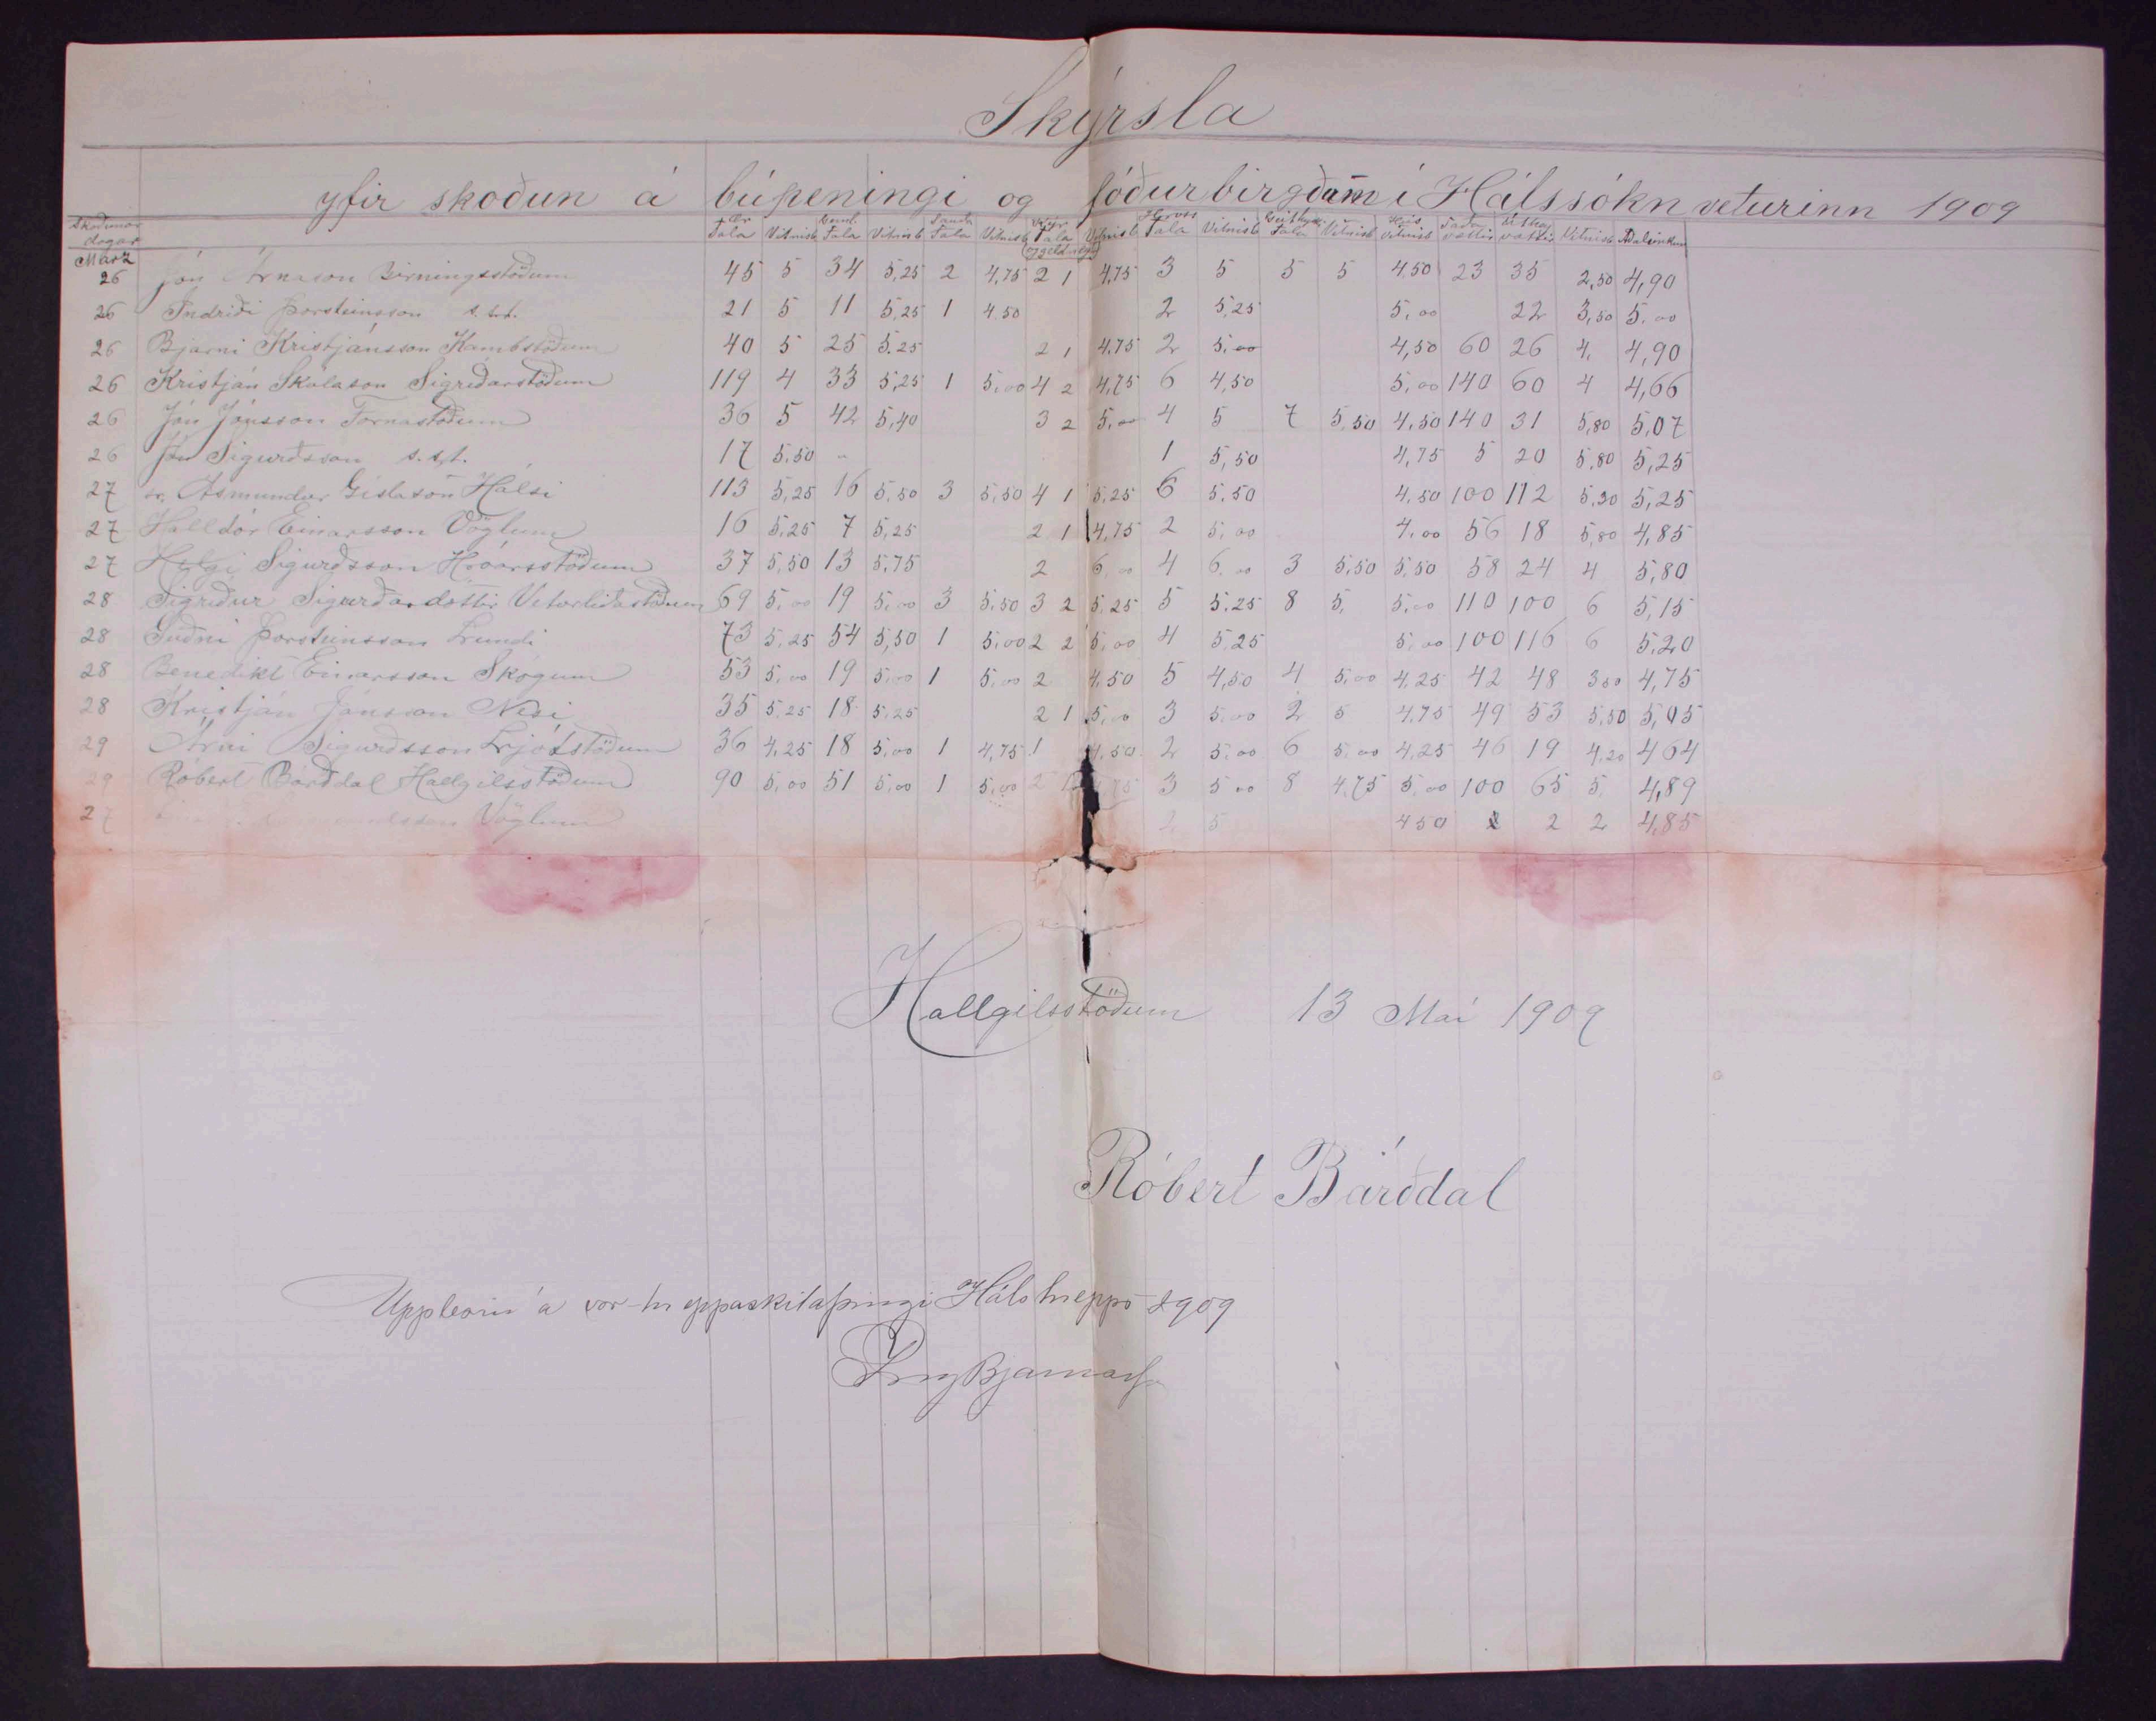 Skýrsla
yfir skoðun á búpeningi og fóðurbirgðum í Hálssókn veturinn 1909
Skoðunar dagar Ær Tala Vitnisb Tala Vitnisb Sauða Tala Vitnisb Kýr Tala og geldneyti Vitnisb Hross Tala Vitnisb Geithyr Tala Vitnisb Hús vitnisb Taða vættir Úthey vættir Vitnisb Aðaleinkun
Marz
26 Jón Árnason Birningsstöðum 45 5 34 5,25 2 4,75 2 1 4,75 3 5 5 5 4,50 23 35 2,50 4,90
26 Indriði Þorsteinsson s.st. 21 5 11 5,25 1 4.50 2 5,25 5,00 22 3,50 5,00
26 Bjarni Kristjánsson Kambsstöðum 40 5 25 5.25 2 1 4.75 2 5,00 4,50 60 26 4, 4,90
26 Kristján Skúlason Sigríðarstöðum 119 4 33 5,25 1 5,00 4 2 4,75 6 4,50 5,00 140 60 4 4,66
26 Jón Jónsson Fornastöðum 36 5 42 5,40 3 2 5,00 4 5 7 5,50 4,50 140 31 5,80 5,07
26 Jón Sigurðsson s.st. 17 5,50 " 1 5,50 4,75 5 20 5,80 5,25
27 sr. Ásmundur Gíslason Hálsi 113 5,25 16 5,50 3 5,50 4 1 5,25 6 5,50 4,50 100 112 5,30 5,25
27 Halldór Einarsson Vöglum 16 5,25 7 5,25 2 1 4,75 2 5,00 4,00 56 18 5,80 4,85
27 Helgi Sigurðsson Hróarsstöðum 37 5,50 13 5,75 2 6,00 4 6,00 3 5,50 5,50 58 24 4 5,80
28 Sigríður Sigurðardóttir Veturliðastöðum 69 5,00 19 5,00 3 5,50 3 2 5,25 5 5,25 8 5, 5,00 110 100 6 5,15
28 Guðni Þorsteinsson Lundi 73 5,25 54 5,50 1 5,00 2 2 5,00 4 5,25 5,00 100 116 6 5,20
28 Benedikt Einarsson Skógum 53 5,00 19 5,00 1 5,00 2 4,50 5 4,50 4 5,00 4,25 42 48 3 50 4,75
28 Kristján Jónsson Nesi 35 5,25 18 5,25 2 1 5,00 3 5,00 2 5 4,75 49 53 5,50 5,05
29 Árni Sigurðsson Ljótsstöðum 36 4,25 18 5,00 1 4,75 1 4,50 2 5,00 6 5,00 4,25 46 19 4,20 4 64
29 Róbert Bárðdal Hallgilsstöðum 90 5,00 51 5,00 1 5,00 2 3 5 00 8 4,75 5,00 100 65 5, 4,89
27 Vöglum 2 5 4 50 2 2 4,85
Hallgilsstöðum 13 Maí 1909
Róbert Bárðdal
Upplesin á vor-hreppaskilaþingi Hálshrepps 1909
IngBjarnars